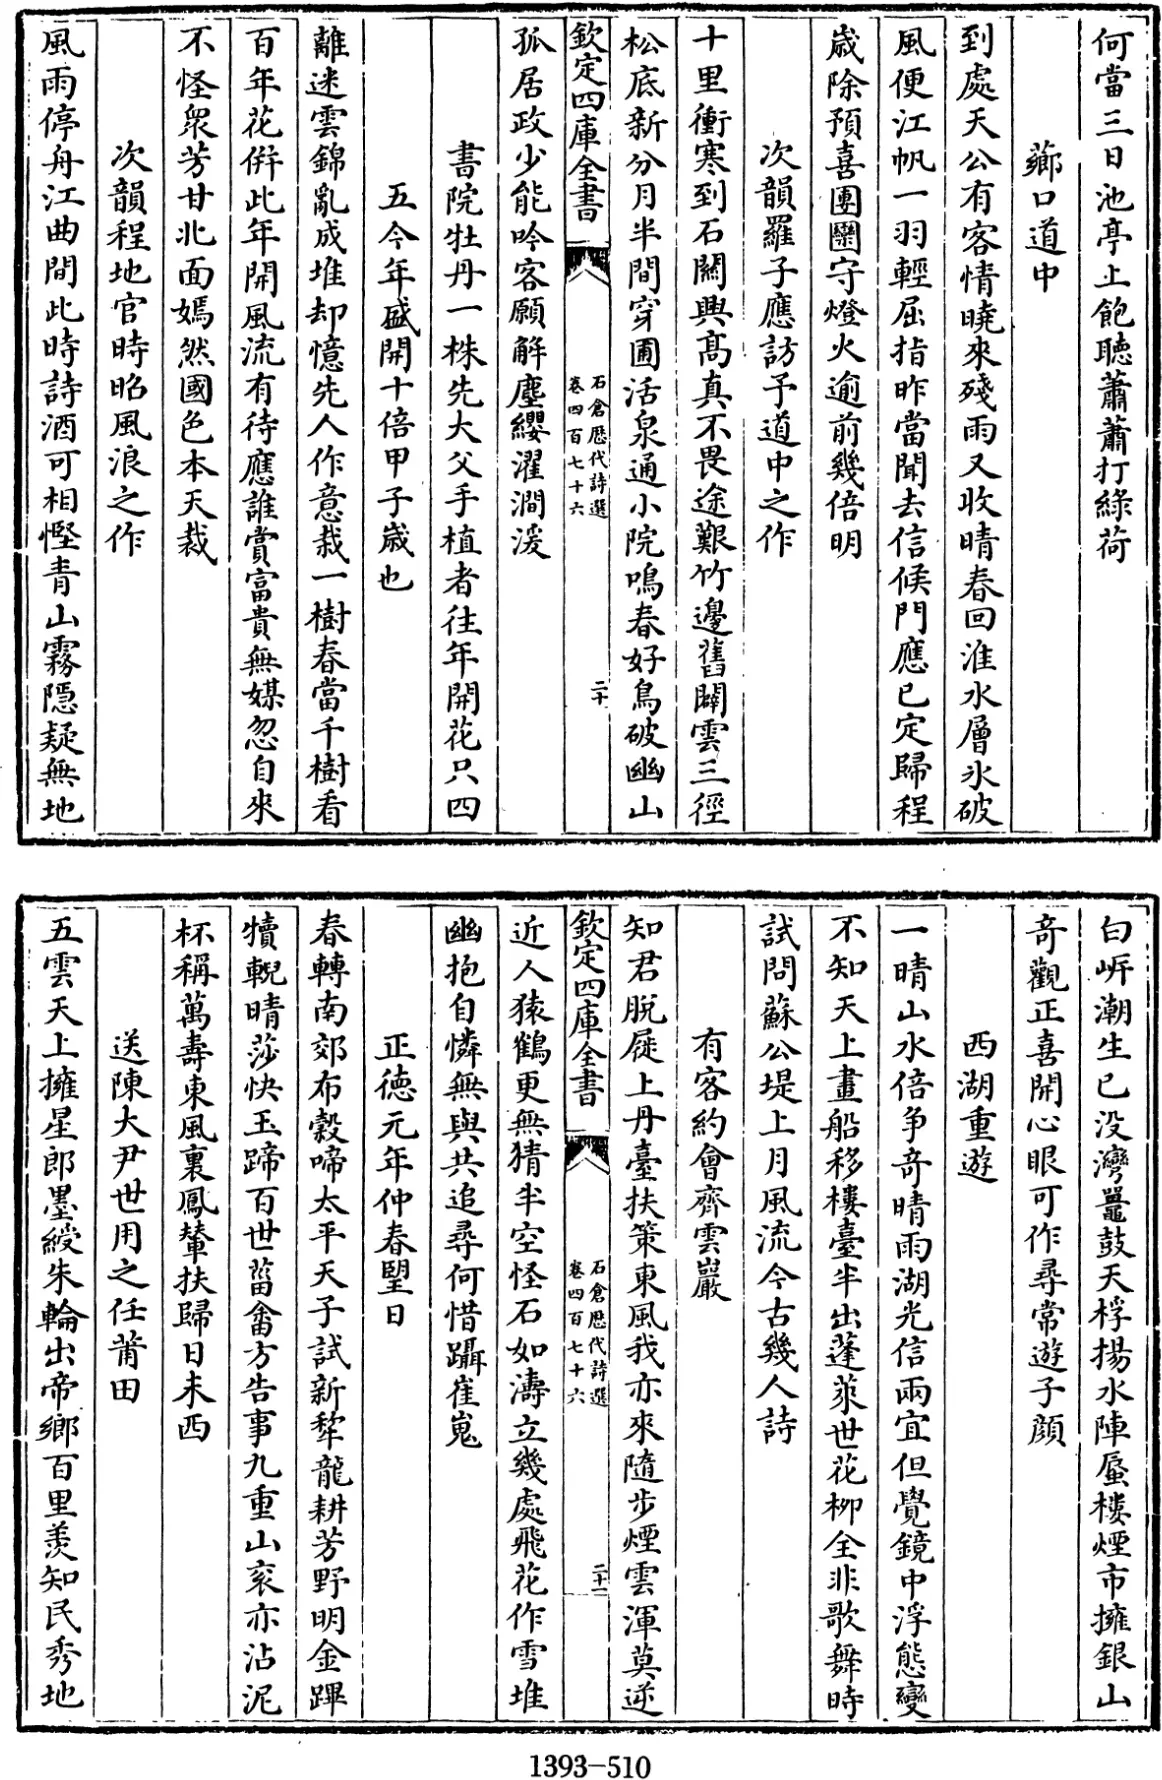 何當三日池亭上飽聽蕭蕭打綠荷
薌口道中
到處天公有客情曉來殘雨又收晴春回淮水層氷破
風便江帆一羽輕屈指昨當聞去信候門應已定歸程
歳除預喜團圞守燈火逾前幾倍明
次韻羅子應訪予道中之作
十里衝寒到石闗興髙真不畏途艱竹邊舊闢雲三徑
松底新分月半間穿圃活泉通小院鳴春好鳥破幽山
欽定四庫全書
石倉歴代詩選
卷四百七十六
二十
孤居政少能吟客願解塵纓濯澗湲
書院牡丹一株先大父手植者往年開花只四
五今年盛開十倍甲子歳也
離迷雲錦亂成堆却憶先人作意栽一樹春當千樹看
百年花倂此年開風流有待應誰賞富貴無媒忽自來
不怪衆芳甘北面嫣然國色本天裁
次韻程地官時昭風浪之作
風雨停舟江曲間此時詩酒可相慳青山霧隠疑無地
白㟁潮生已没灣鼍鼓天桴揚水陣蜃樓煙市擁銀山
奇觀正喜開心眼可作尋常遊子顔
西湖重遊
一晴山水倍争奇晴雨湖光信兩宜但覺鏡中浮態變
不知天上畫船移樓臺半出蓬萊世花柳全非歌舞時
試問蘇公堤上月風流今古幾人詩
有客約會齊雲巖
知君脱屣上丹臺扶策東風我亦來隨步煙雲渾莫逆
欽定四庫全書
石倉歴代詩選
卷四百七十六
二十一
近人猿鶴更無猜半空怪石如濤立幾處飛花作雪堆
幽抱自憐無與共追尋何惜躡崔嵬
正德元年仲春朢日
春轉南郊布穀啼太平天子試新犂龍耕芳野明金鞸
犢輗晴莎快玉蹄百世菑畬方告事九重山衮亦沾泥
杯稱萬壽東風裏鳳輦扶歸日未西
送陳大尹世用之任莆田
五雲天上擁星郎墨綬朱輪出帝鄉百里羡知民秀地
1393-510